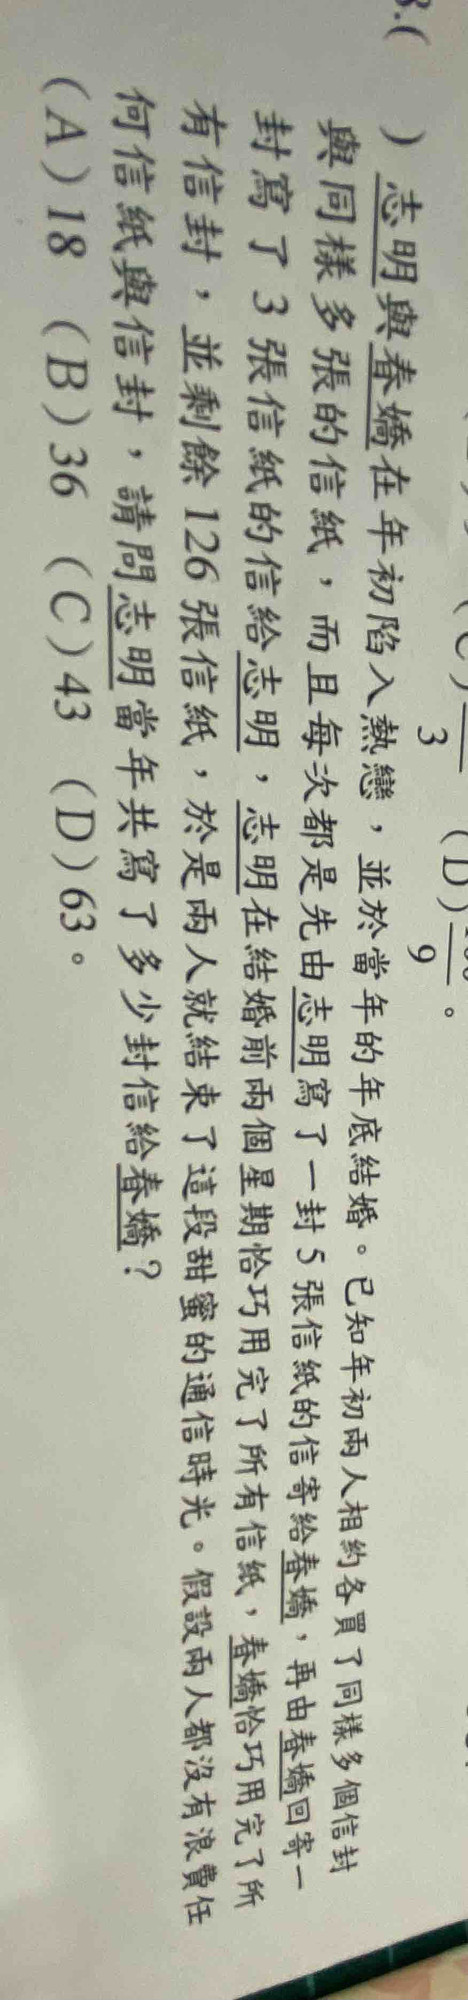 (C) (D)
3 9 。
3.( ) 志明與春嬌在年初陷入熱戀，並於當年的年底結婚。已知年初兩人相約各買了同樣多個信封
與同樣多張的信紙，而且每次都是先由志明寫了一封5張信紙的信寄給春嬌，再由春嬌回寄一
封寫了3張信紙的信給志明，志明在結婚前兩個星期恰巧用完了所有信紙，春嬌恰巧用完了所
有信封，並剩餘126張信紙，於是兩人就結束了這段甜蜜的通信時光。假設兩人都沒有浪費任
何信紙與信封，請問志明當年共寫了多少封信給春嬌？
(A)18 (B)36 (C)43 (D)63。